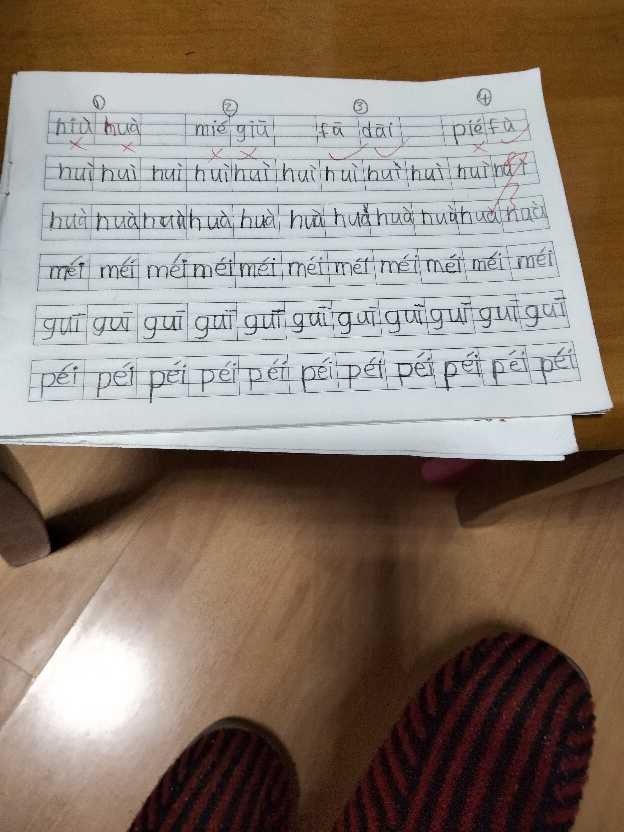 ① ② ③ ④
hiù huà mié giū fā dāi pié fù
huì huì huì huì huì huì huì huì huì huì huì
huà huà huà huà huà huà huà huà huà huà huà
méi méi méi méi méi méi méi méi méi méi méi
guī guī guī guī guī guī guī guī guī guī guī
péi péi péi péi péi péi péi péi péi péi péi